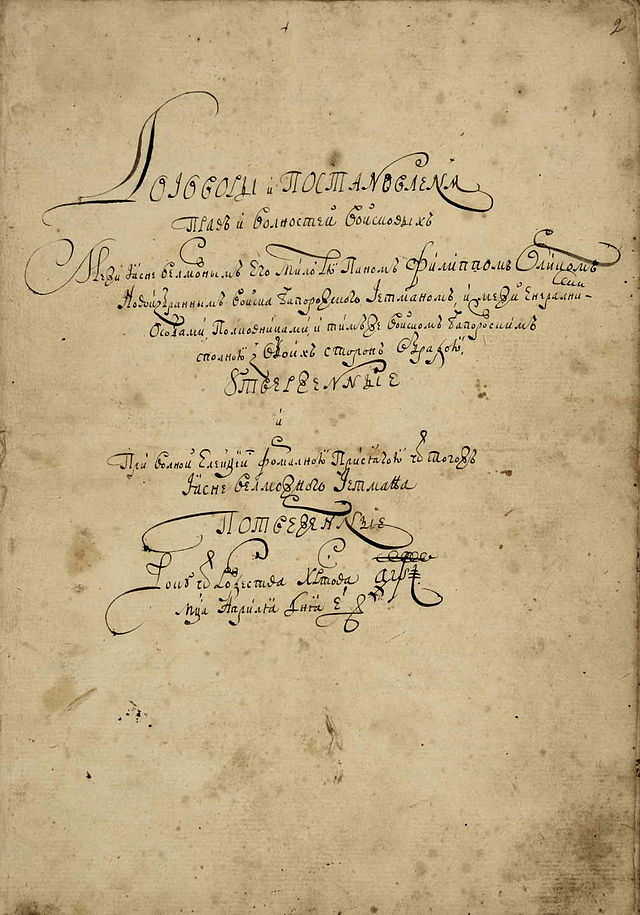 2
Договоры и Постановленя
Правъ и волностей войсковыхъ
Межи Ясне велможнымъ Его Милостю Паномъ Филиппомъ Орликомъ
Новоизбраннымъ войска Запорозского Гетманомъ, и межи Енералними
Особами, Полковниками, и тимъже войскомъ Запорозскимъ
сполною з обоихъ сторонъ обрадою,
Утверженные
и
При волной Елекции формалною присягою от тогожъ
Ясне велможного Гетмана
Потверженные
Року от рожества Христова аѱі
Мца Априля дня е